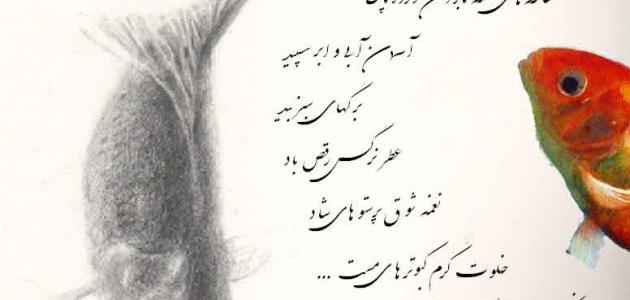 آسمان آبی و ابر سپید
برگهای سبز بید
عطر نرگس رقص باد
نغمه شوق پرستو های شاد
خلوت گرم کبوتر های مست ...